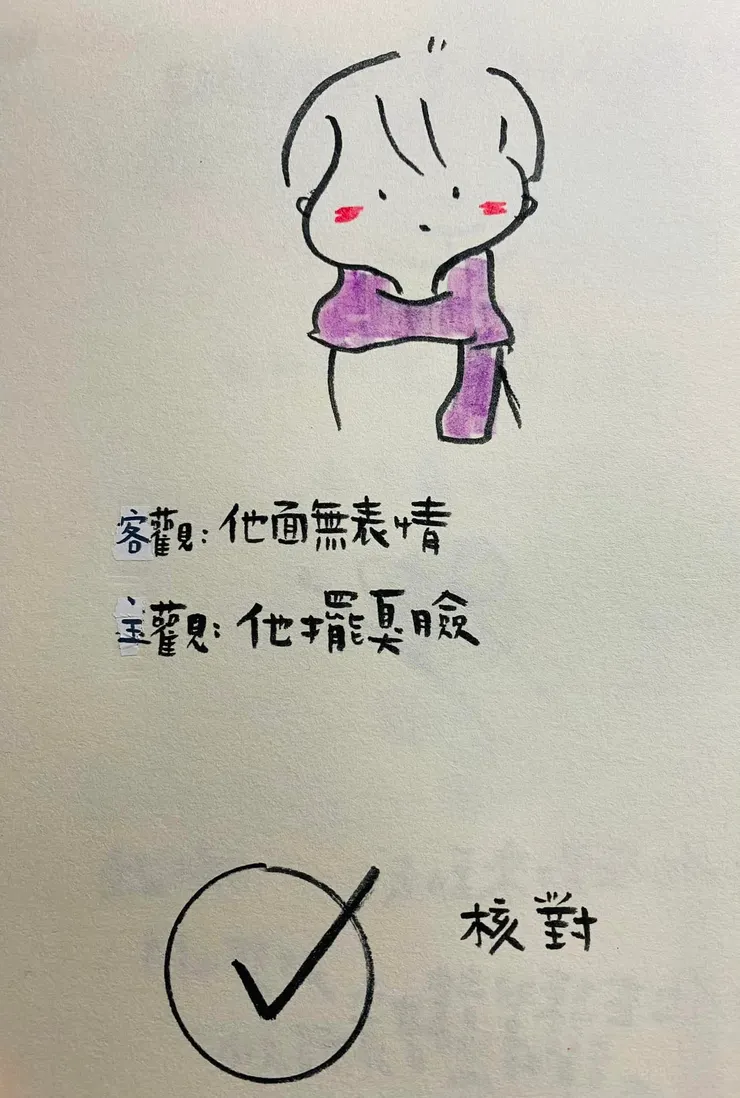 客觀：他面無表情
主觀：他擺臭臉
核對